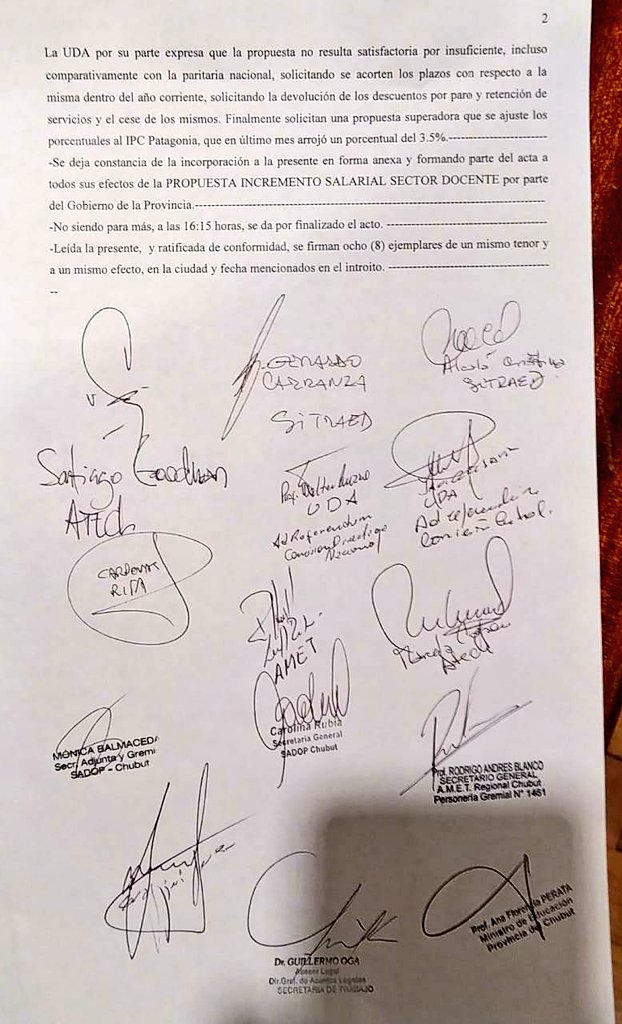 2
La UDA por su parte expresa que la propuesta no resulta satisfactoria por insuficiente, incluso
comparativamente con la paritaria nacional, solicitando se acorten los plazos con respecto a la
misma dentro del año corriente, solicitando la devolución de los descuentos por paro y retención de
servicios y el cese de los mismos. Finalmente solicitan una propuesta superadora que se ajuste los
porcentuales al IPC Patagonia, que en último mes arrojó un porcentual del 3.5%.--------------------------
-Se deja constancia de la incorporación a la presente en forma anexa y formando parte del acta a
todos sus efectos de la PROPUESTA INCREMENTO SALARIAL SECTOR DOCENTE por parte
del Gobierno de la Provincia.------------------------------------------------------------------------------------
-No siendo para más, a las 16:15 horas, se da por finalizado el acto. ------------------------------------------
-Leída la presente, y ratificada de conformidad, se firman ocho (8) ejemplares de un mismo tenor y
a un mismo efecto, en la ciudad y fecha mencionados en el introito. ------------------------------------------
--
GERARDO
CARRANZA
SITRAED
SITRAED
Santiago Goodman
ATECh
UDA
Ad Referendum
Comision Directiva
Nacional
UDA
Ad referendum
CARDENAS
RITA
AMET
Atech
MÓNICA BALMACEDA
Secr. Adjunta y Gremi
SADOP - Chubut
Carolina Rubia
Secretaria General
SADOP Chubut
Prof. RODRIGO ANDRES BLANCO
SECRETARIO GENERAL
A.M.E.T. Regional Chubut
Personería Gremial N° 1461
Dr. GUILLERMO OGA
Asesor Legal
Dir. Gral. de Asuntos Legales
SECRETARIA DE TRABAJO
Prof. Ana Florencia PERATA
Ministro de Educación
Provincia del Chubut